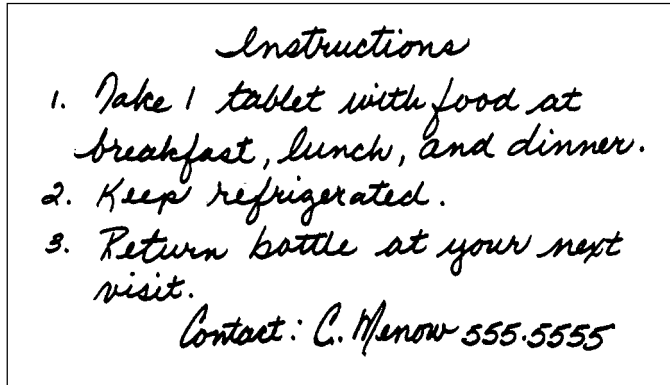 Instructions
1. Take 1 tablet with food at
breakfast, lunch, and dinner.
2. Keep refrigerated.
3. Return bottle at your next
visit.
Contact: C. Menow 555.5555